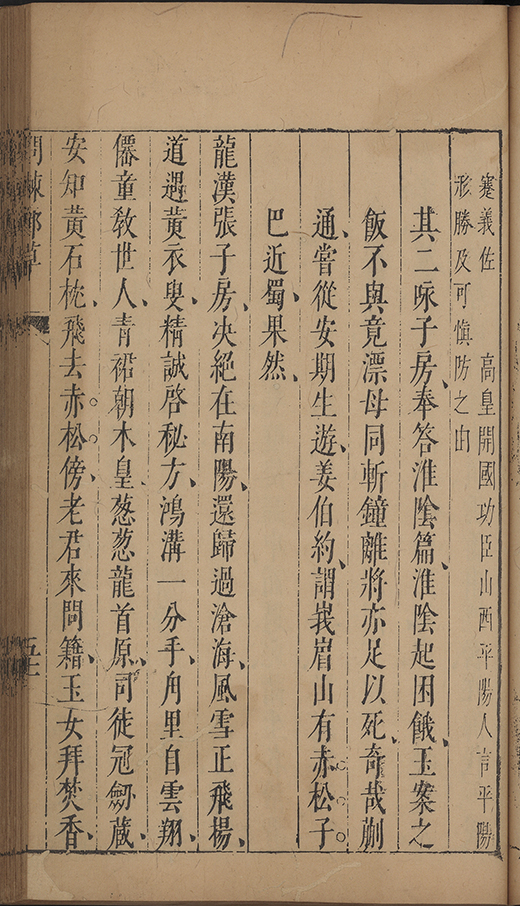 蹇義佐 高皇開國功臣山西平陽人言平陽
形勝及可慎防之由
其二咏子房奉答淮陰篇淮陰起困餓玉案之
飯不與竟漂母同斬鐘離將亦足以死奇哉蒯
通嘗從安期生遊姜伯約謂峩眉山有赤松子
巴近蜀果然
龍漢張子房决絕在南陽還歸過滄海風雪正飛揚
道遇黃衣叟精誠啓秘方鴻溝一分手角里自雲翔
僊童敎世人青裙朝木皇葱葱龍首原司徒冠劒蔵
安知黃石枕飛去赤松傍老君來問籍玉女拜焚香
問棘郵草
五